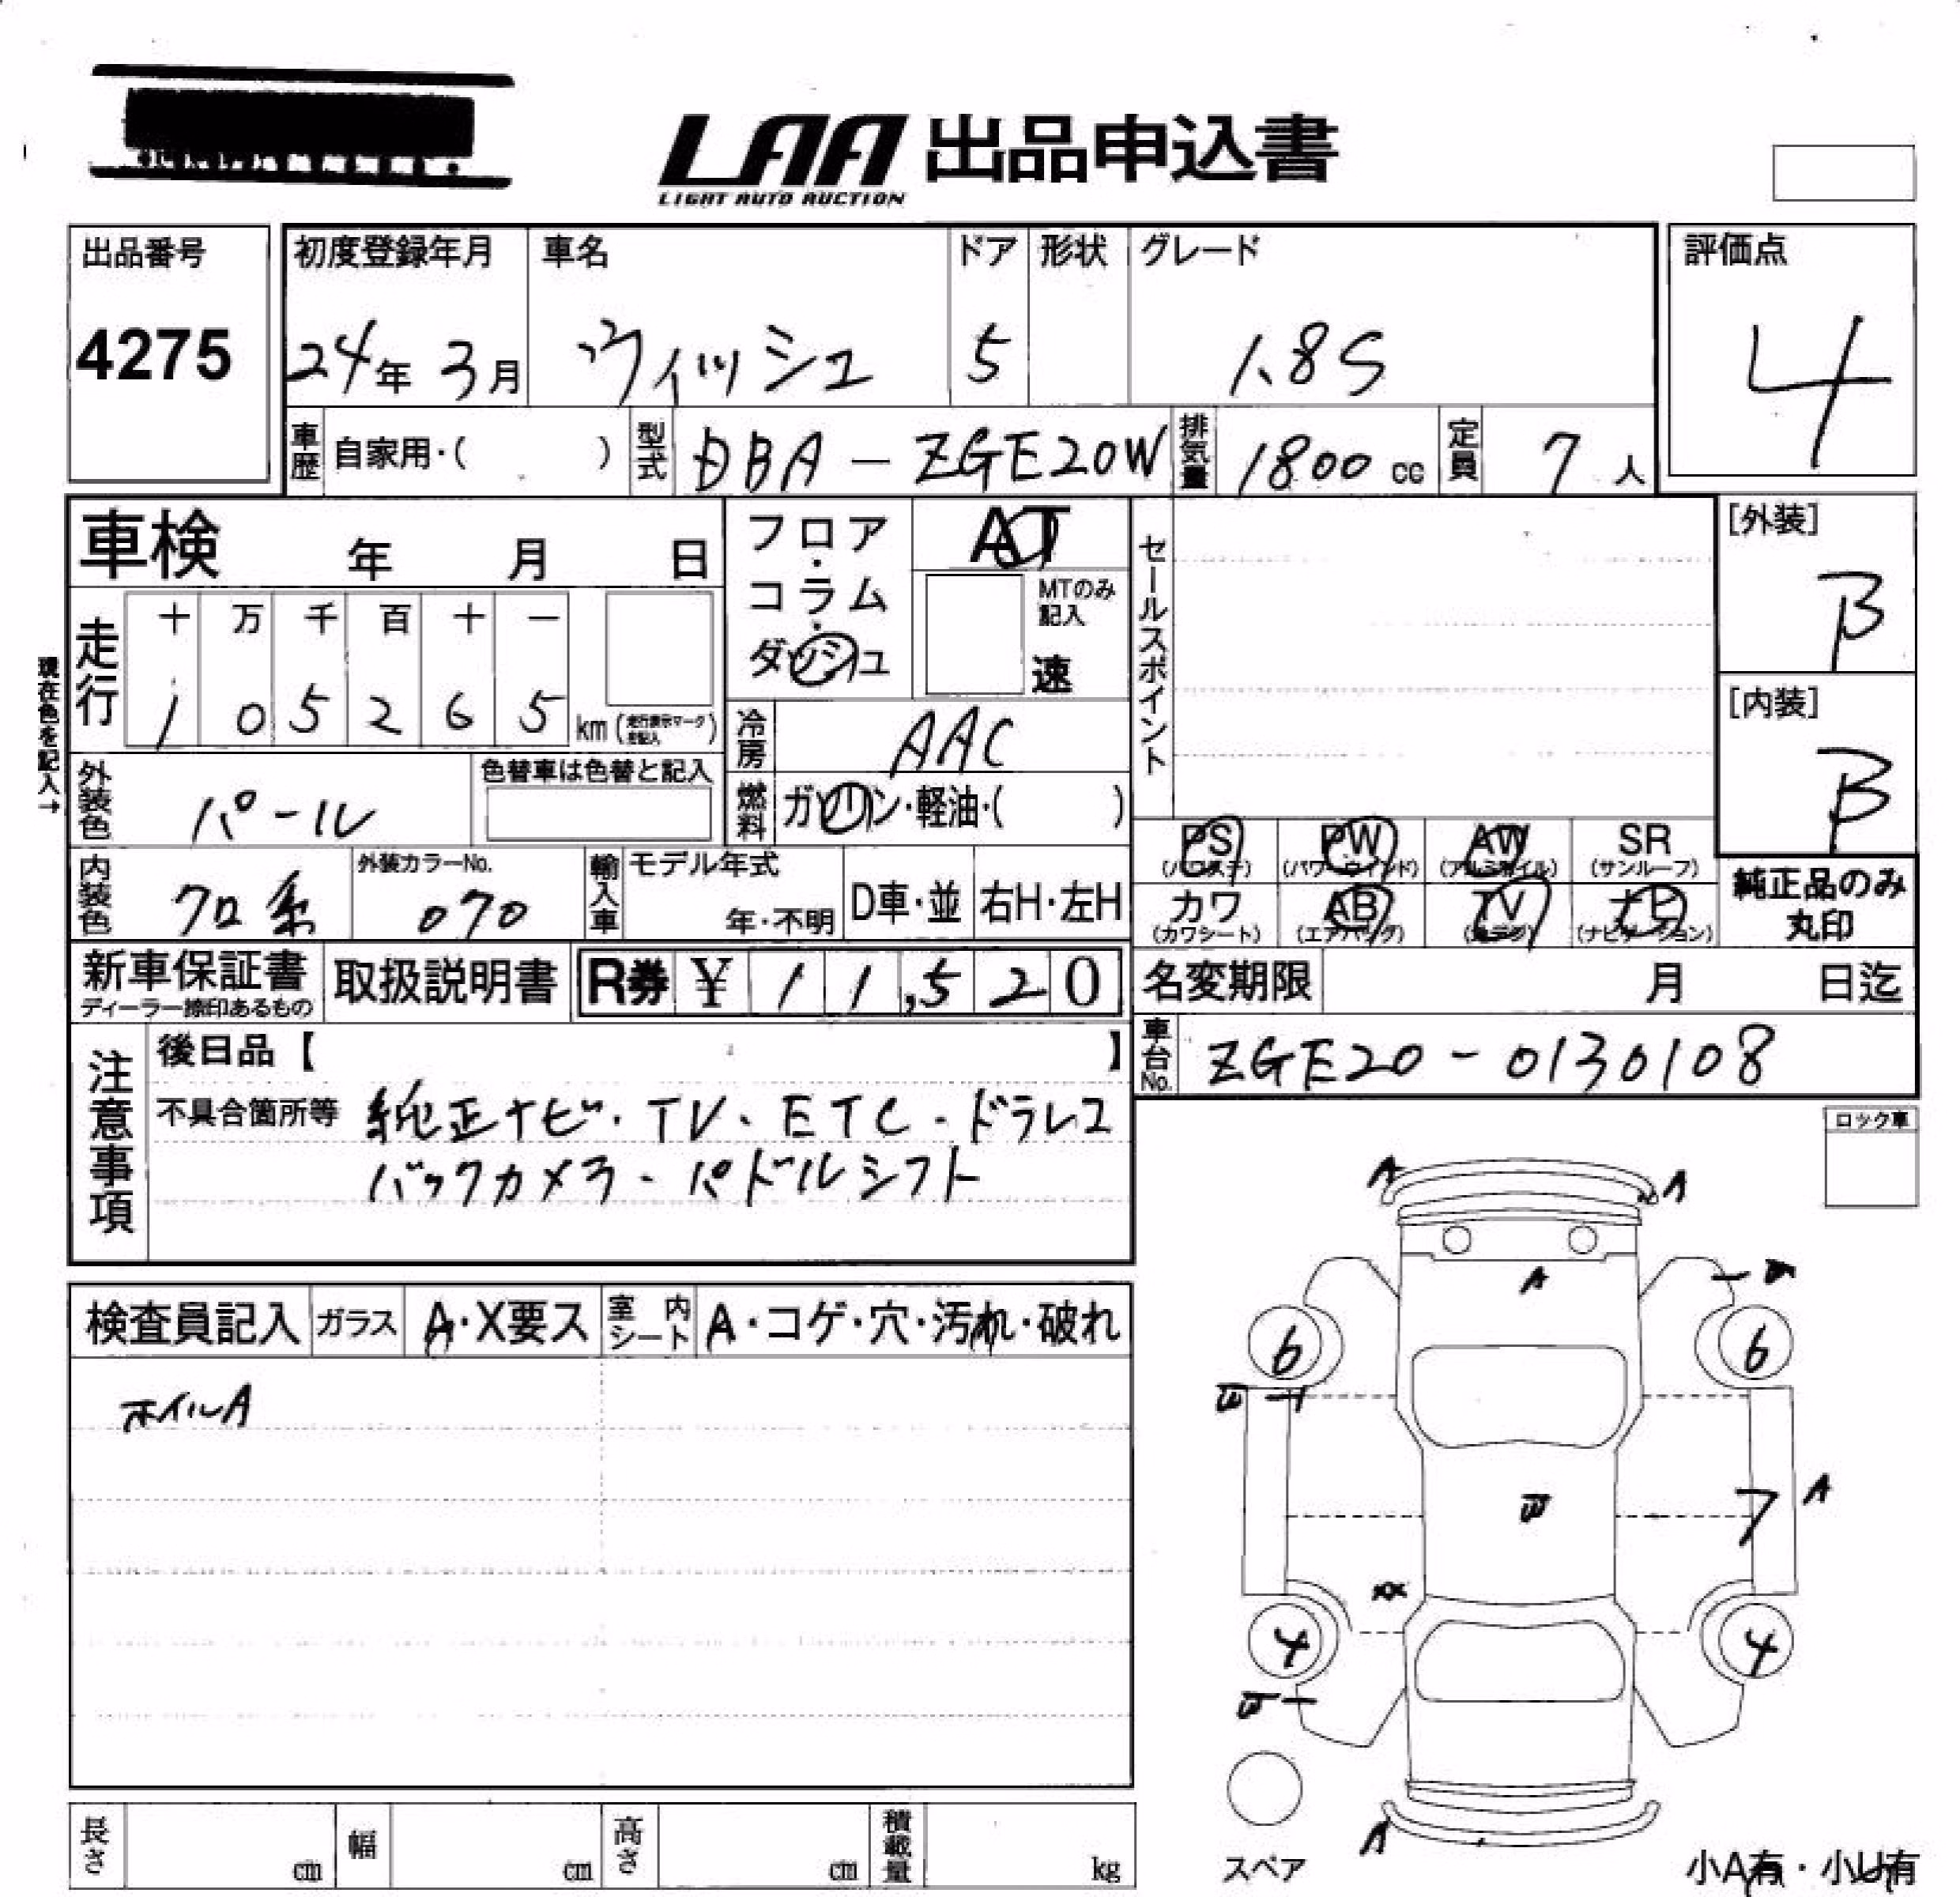 LAA 出品申込書
LIGHT AUTO AUCTION
出品番号
4275
初度登録年月
24年 3月
車名
ヴィッシュ
ドア
5
形状
グレード
1.8S
評価点
4
車歴 自家用・( )
型式 DBA-ZGE20W
排気量 1800 cc
定員 7 人
車検 年 月 日
フロア・コラム・ダッシュ
AT
MTのみ記入
速
セールスポイント
[外装]
B
[内装]
B
現在色を記入→
走行
十 万 千 百 十 一
1 0 5 2 6 5 km
冷房 AAC
外装色 パール
色替車は色替と記入
燃料 ガソリン・軽油・( )
PS (パワステ)
PW (パワーウインド)
AW (アルミホイル)
SR (サンルーフ)
内装色 クロ系
外装カラーNo.
070
輸入車
モデル年式
年・不明
D車・並
右H・左H
カワ (カワシート)
AB (エアバッグ)
TV
ナビ (ナビゲーション)
純正品のみ
丸印
新車保証書
ディーラー捺印あるもの
取扱説明書
R券 ¥ 1 1,5 2 0
名変期限 月 日迄
車台No. ZGE20-0130108
注意事項
後日品【 】
不具合箇所等 純正ナビ・TV・ETC・ドラレコ
バックカメラ・パドルシフト
ロック車
A A
A
6 6
A
7
4 4
A
検査員記入
ガラス A・X要ス
室内シート A・コゲ・穴・汚れ・破れ
ホイルA
長さ cm
幅 cm
高さ cm
積載量 kg
スペア
小A有・小U有